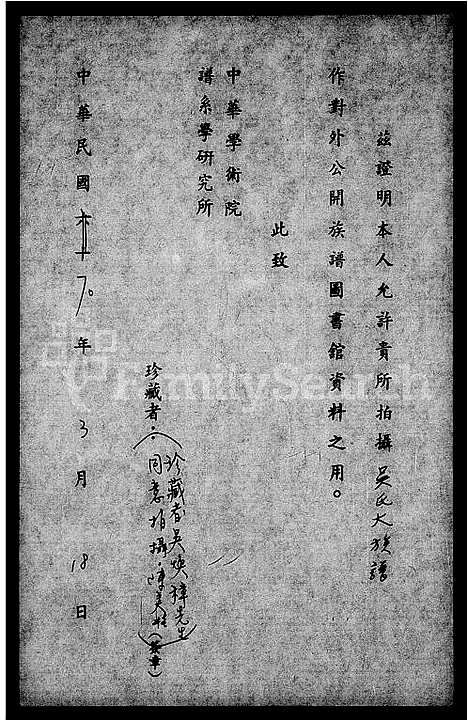 茲證明本人允許貴所拍攝吳氏大族譜
作對外公開族譜圖書舘資料之用。
此致
中華學術院
譜系學研究所
珍藏者：(珍藏者吳煥璋先生
同意拍攝.陳美桂)(簽章)
中華民國六十70年3月18日
FamilySearch